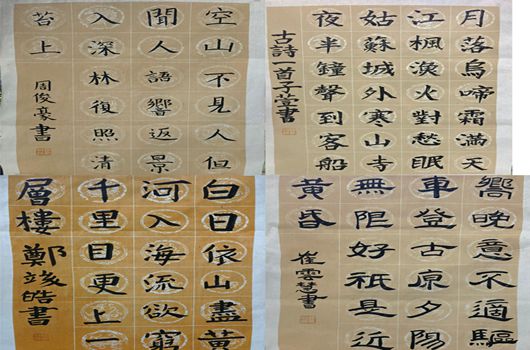 空山不見人但
聞人語響返景
入深林復照清
苔上
周俊豪書
月落烏啼霜滿天
江楓漁火對愁眠
姑蘇城外寒山寺
夜半鐘聲到客船
古詩一首子書
白日依山盡黃
河入海流欲窮
千里目更上一
層樓
鄭竣皓書
嚮晚意不適驅
車登古原夕陽
無限好祇是近
黃昏
崔雲書